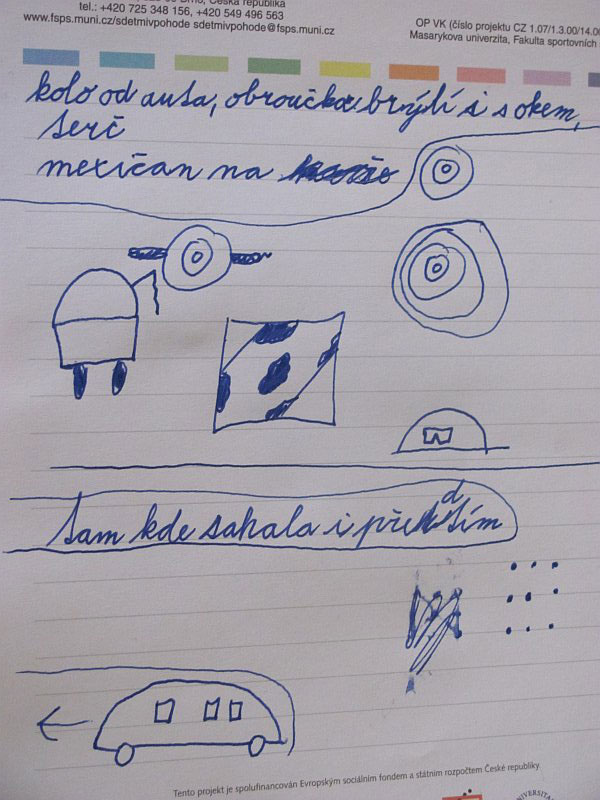 Česká republika
tel.: +420 725 348 156, +420 549 496 563
www.fsps.muni.cz/sdetmivpohode sdetmivpohode@fsps.muni.cz
OP VK (číslo projektu CZ 1.07/1.3.00/14.00
Masarykova univerzita, Fakulta sportovních
kolo od auta, obroučka brýlí i s okem,
terč
mexičan na
tam kde sahala i předtím
Tento projekt je spolufinancován Evropským sociálním fondem a státním rozpočtem České republiky.